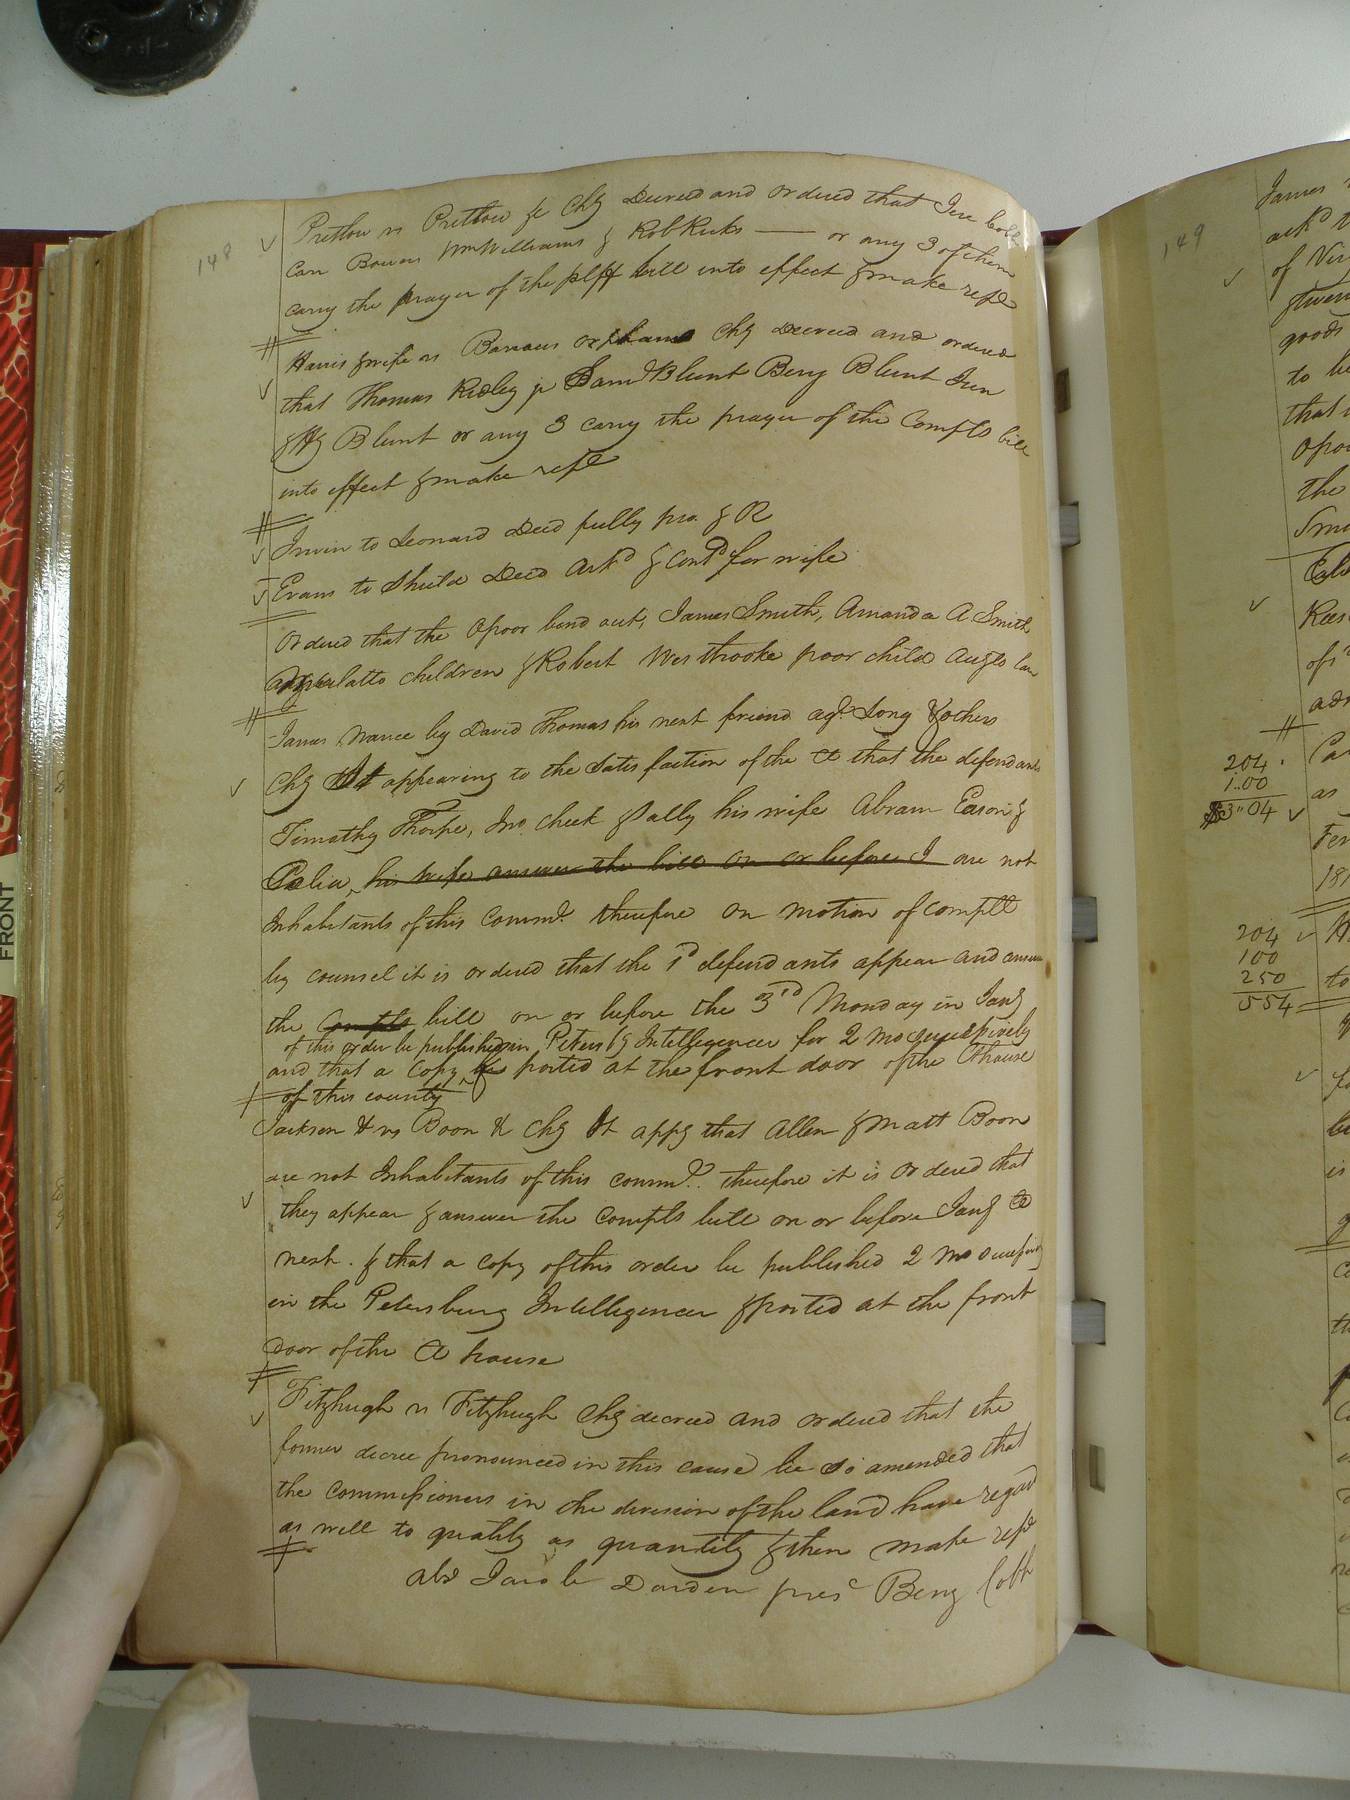 148
Pretlow vs Pretlow &c Chy Decreed and ordered that Jere Cobb
Carr Bowers Wm Williams & Rob Ricks — or any 3 of them
carry the prayer of the plff bill into effect & make rept
Harris & wife vs Barrows orphans Chy Decreed and ordered
that Thomas Ridley jr Saml Blunt Benj Blunt Jun
& Hy Blunt or any 3 carry the prayer of the Complts bill
into effect & make rept
Irwin to Leonard Deed fully pro. & R
Evans to Shield Deed Ackd & Contd for wife
Ordered that the Opoor bind out, James Smith, Amanda A Smith
mulatto children & Robert Westbrooke poor child Augto law
James Nance by David Thomas his next friend agt Long & others
Chy It appearing to the Satisfaction of the Ct that the defendants
Timothy Thorpe, Jno Cheek & Sally his wife Abram Eason &
Celia, his wife answer the bill on or before J are not
Inhabitants of this Commd. therefore on motion of complt
by counsel it is ordered that the sd defendants appear and answer
the Complts bill on or before the 3rd Monday in Jany
of this order be published in Petersbg Intelligencer for 2 mo successively
and that a Copy & posted at the front door of the Cthouse
of this county
Jackson & vs Boon & Chy It appg that Allen & Matt Boon
are not Inhabitants of this commd. therefore it is ordered that
they appear & answer the complts bill on or before Jany Ct
next. & that a copy of this order be published 2 mo
in the Petersburg Intelligencer & posted at the front
door of the Ct house
Fitzhugh vs Fitzhugh Chy decreed and ordered that the
former decree pronounced in this cause be so amended that
the commissioners in the division of the land have regard
as well to quality as quantity & then make rept
abs Jacob Darden prest Benj Cobb
149
James
ackd
of Vir
goods
to be
that
Opoo
the
204
1.00
$3"04
as
181
204
100
250
554
to
is